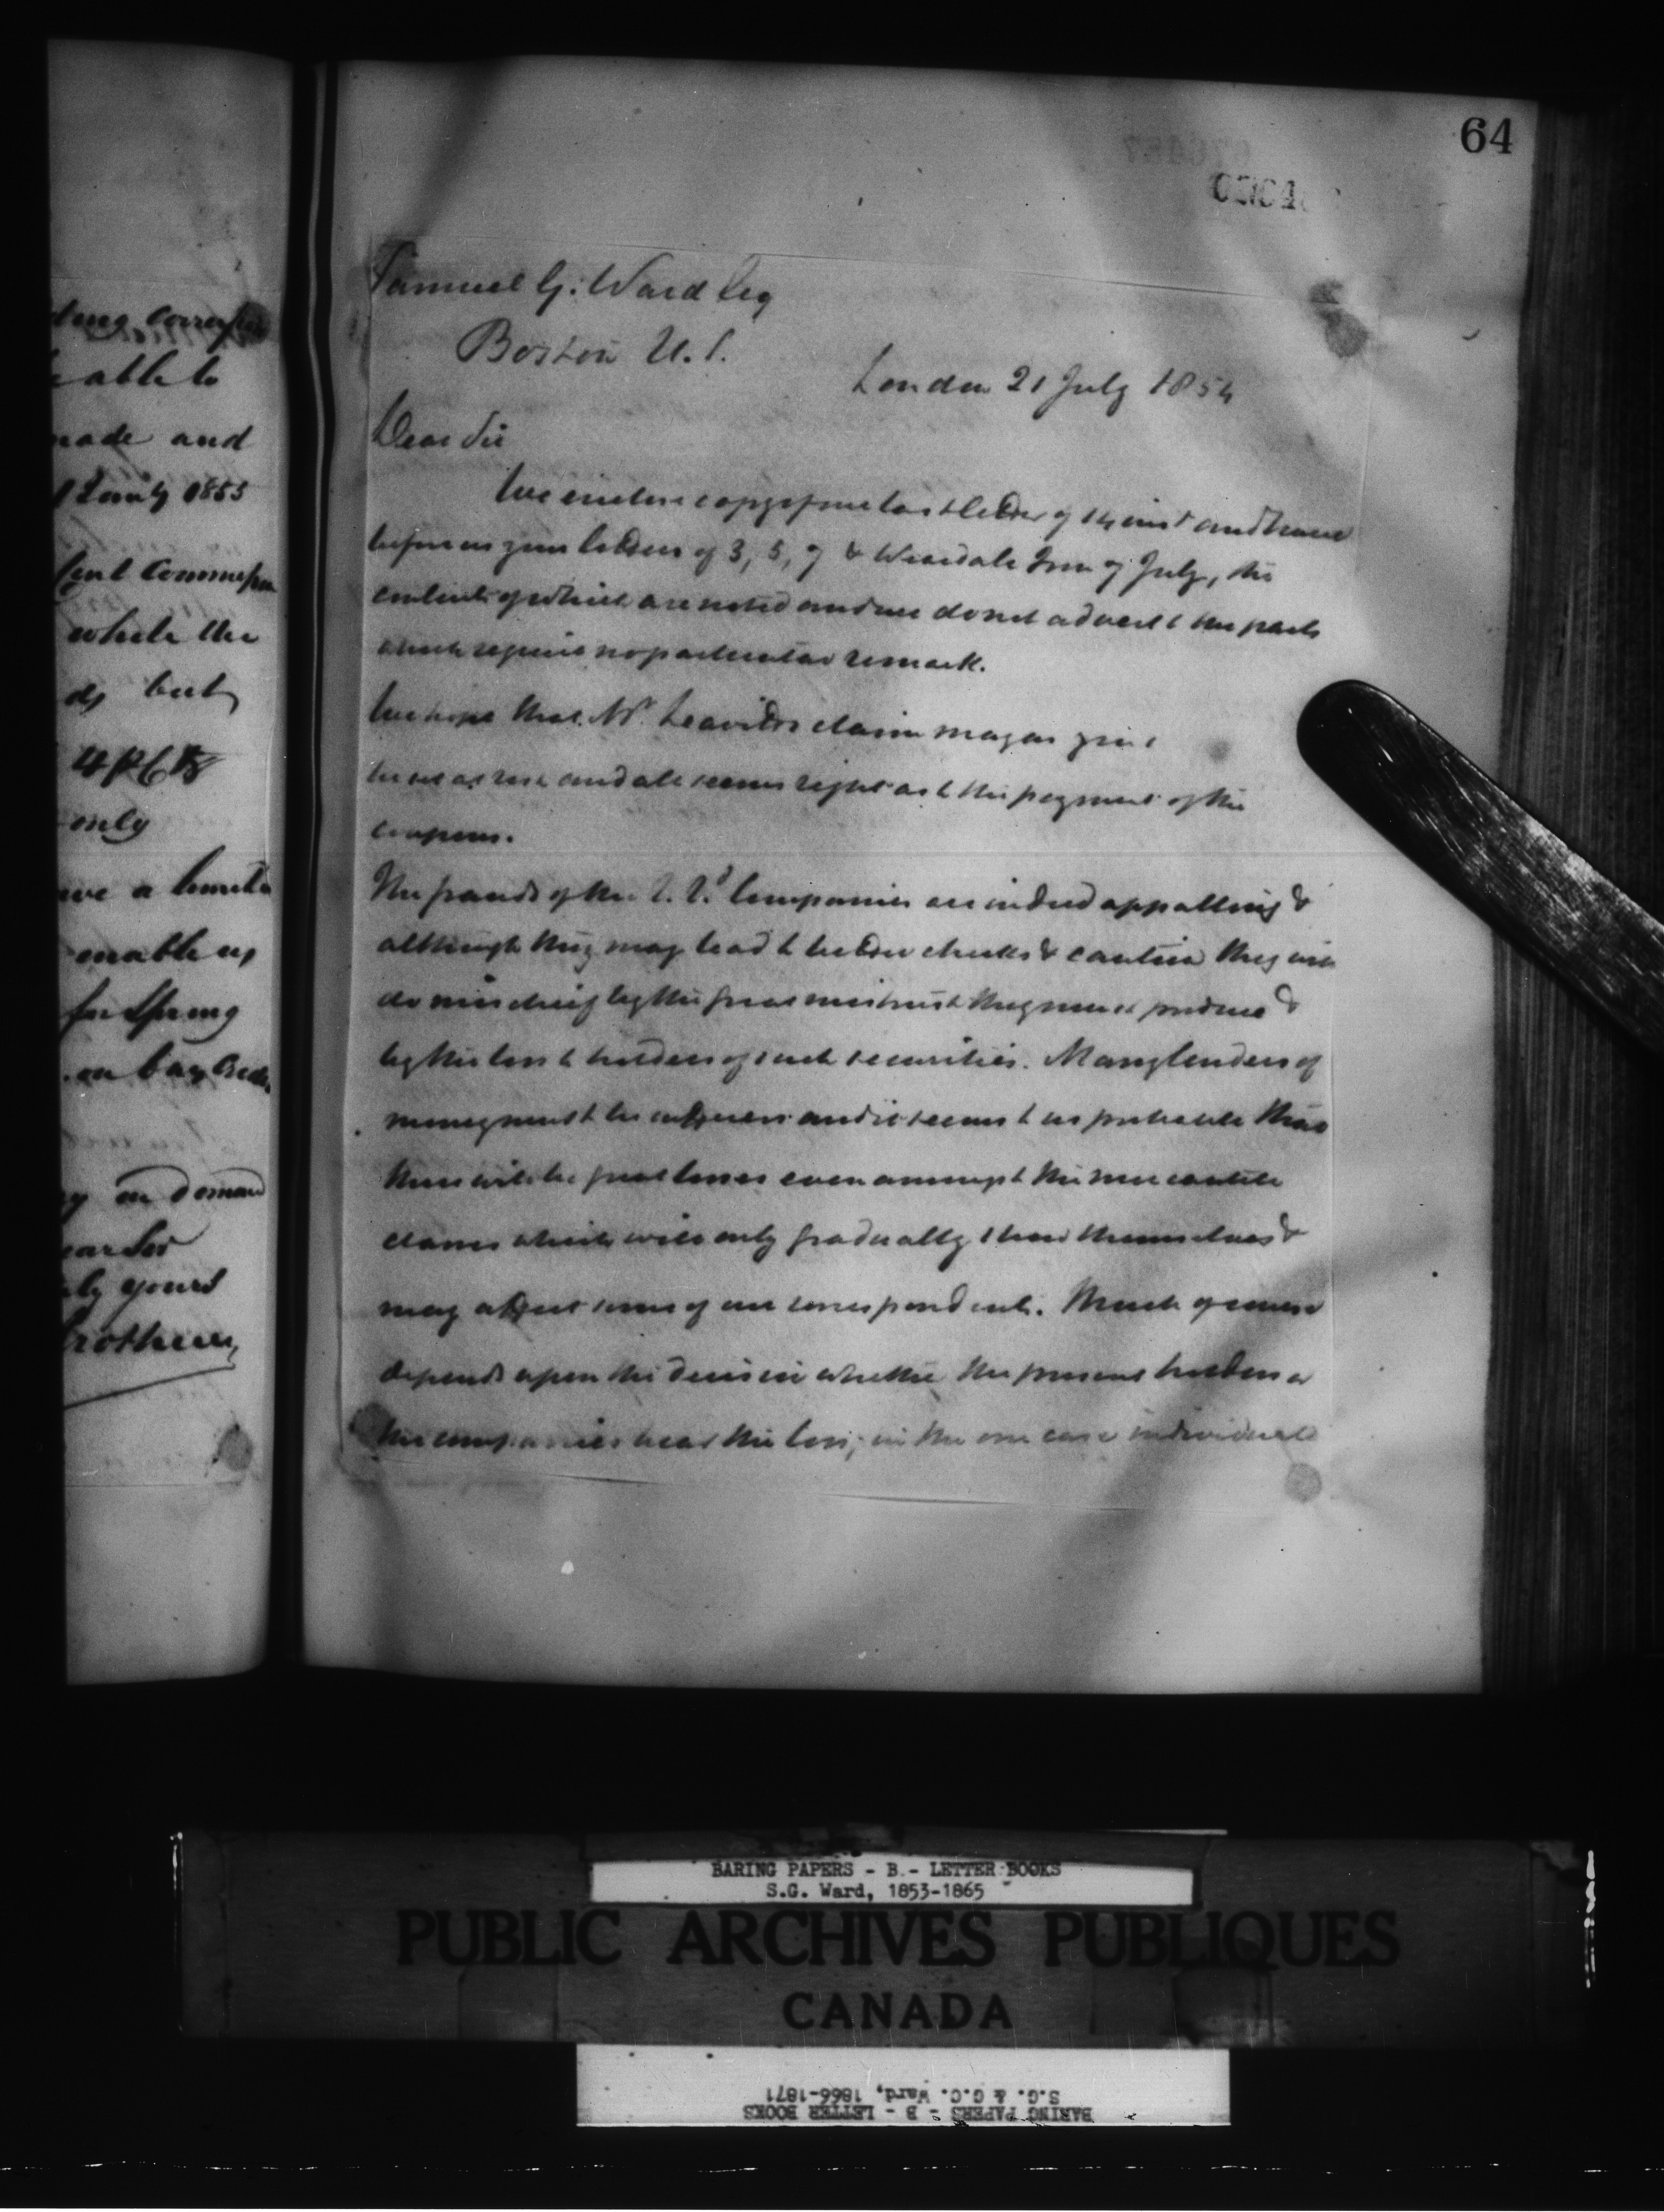 64
Samuel G: Ward Esq
Boston U.S.
London 21 July 1854
Dear Sir
We enclose copy of our last letter of 14 inst and have
before us your letters of 3, 5, 7 & of July, the
contents of which are noted and we do not advert to the parts
which require no particular remark.
We hope that Mr. Leavitts claim may
be set at rest and all seems right as to the payment of the
coupons.
The frauds of the Companies are indeed appalling &
although they may lead to better checks & caution they will
do mischief by the great mistrust they must produce &
by the loss to holders of such securities. Many lenders of
money must be sufferers and it seems to us probable that
there will be great losses even amongst the mercantile
classes which will only gradually show themselves &
may affect some of our correspondents. Much of course
depends upon the decision whether the present holders or
the companies bear the loss; in the one case individuals
able to
made and
1855
while the
but
only
enable us
for Spring
on demand
yours
Brothers
BARING PAPERS - B - LETTER BOOKS
S.G. Ward, 1853-1865
PUBLIC ARCHIVES PUBLIQUES
CANADA
BARING PAPERS - B - LETTER BOOKS
S.G. & G.C. Ward, 1866-1871